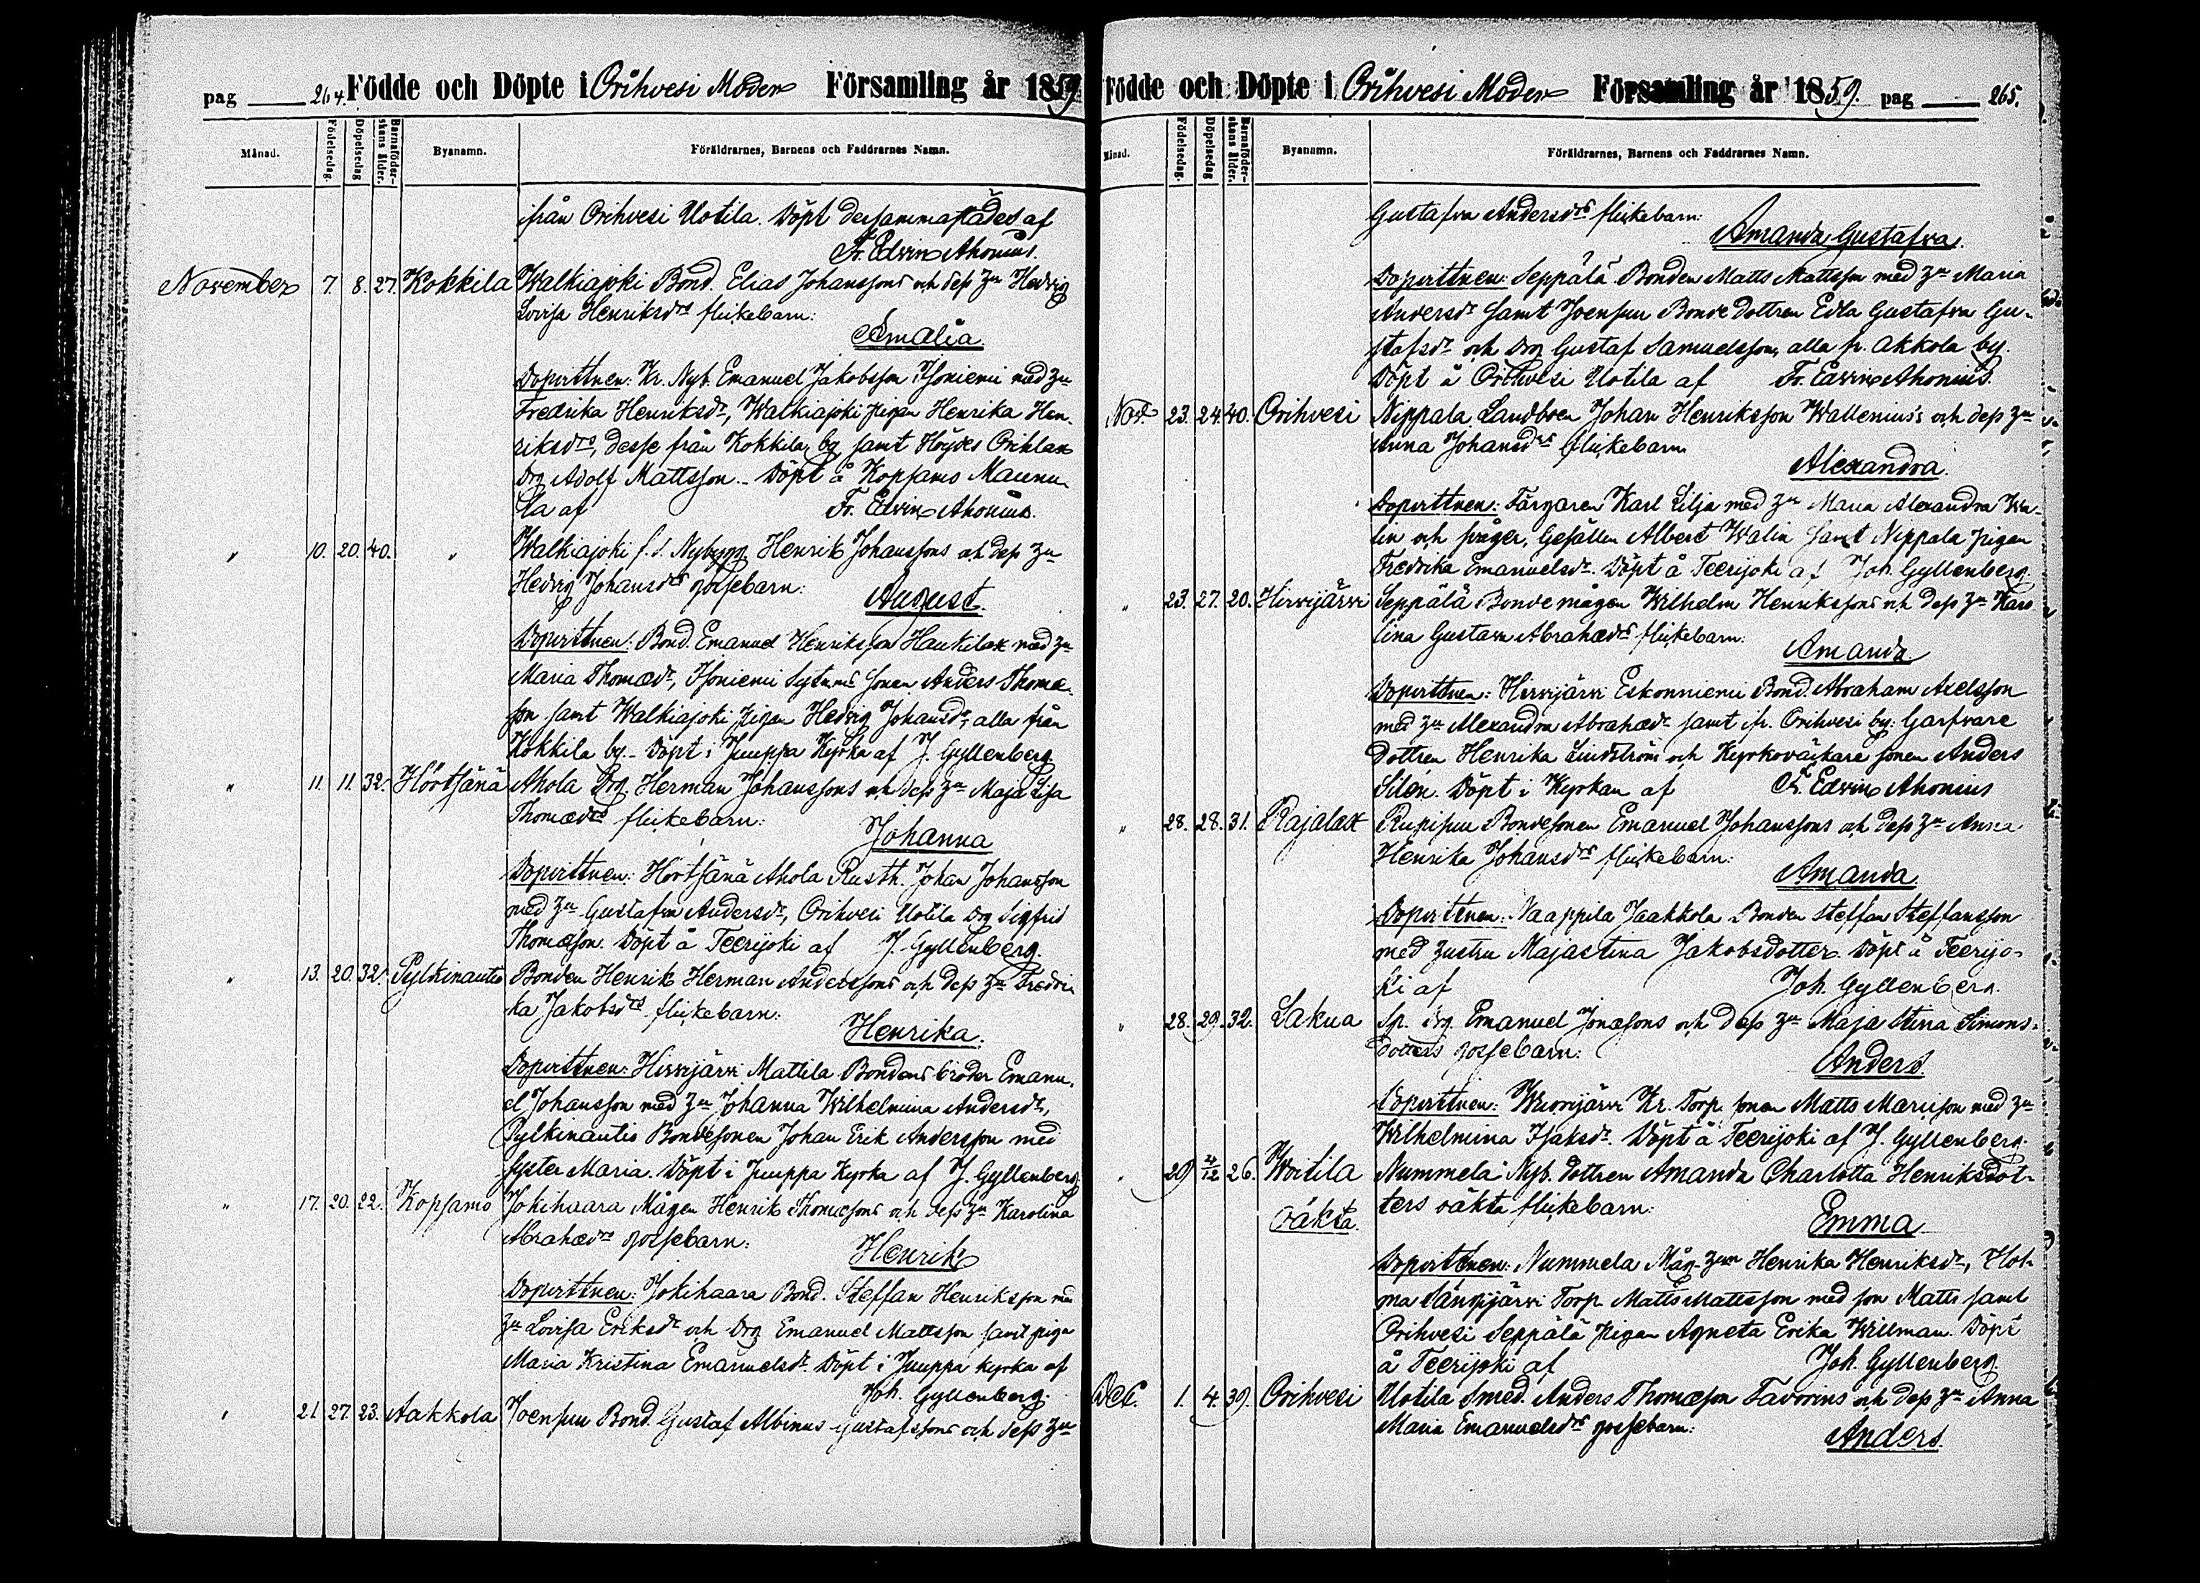 pag 264. Födde och Döpte i Orihvesi Moder Församling år 1859
Månad. Födelsedag. Döpelsedag Barnaföderskans ålder. Byanamn. Föräldrarnes, Barnens och Faddrarnes Namn.
ifrån Orihvesi Uotila. Döpt dersammastädes af
Fr. Edvin Ahonius.
November 7. 8. 27. Kokkila Walkiajoki Bond. Elias Johanssons och dess Hu Hedvig
Lovisa Henriksdrs flickebarn:
Amalia.
Dopvittnen: Kr. Nyb. Emanuel Jakobsson Isoniemi med Hu
Fredrika Henriksdr, Walkiajoki pigan Henrika Hen-
riksdrs, desse från Kokkila by samt Höydes Orihlax
Drg Adolf Mattsson. Döpt å Kopsamo Maunu-
la af Fr. Edvin Ahonius.
" 10. 20. 40. " Walkiajoki f. d. Nybygg. Henrik Johanssons och dess Hu
Hedvig Johansdrs gossebarn:
August.
Dopvittnen: Bond. Emanuel Henriksson Haukilax med Hu
Maria Thomædr, Isoniemi Sytnings sonen Anders Thomæ-
son samt Walkiajoki pigan Hedvig Johansdr, alla från
Kokkila by. Döpt i Juuppa Kyrka af J. Gyllenberg
" 11. 11. 32. Hörtsänä Ahola Drg. Herman Johanssons och dess Hu Maja Lisa
Thomædrs flickebarn:
Johanna
Dopvittnen: Hörtsänä Ahola Rusth. Johan Johansson
med Hu Gustafva Andersdr, Orihvesi Uotila Drg Sigfrid
Thomæson. Döpt å Teerijoki af J. Gyllenberg.
" 13. 20. 32. Pylkinautio Bonden Henrik Herman Anderssons och dess Hu Fredri-
ka Jakobsdrs flickebarn:
Henrika.
Dopvittnen: Hirvijärvi Mattila Bondens broder Emanu-
el Johansson med Hu Johanna Wilhelmina Andersdr,
Pylkinautio Bondesonen Johan Erik Andersson med
syster Maria. Döpt i Juuppa Kyrka af J. Gyllenberg
" 17. 20. 22. Kopsamo Jokihaara Mågen Henrik Thomæsons och dess Hu Karolina
Abrahædrs gossebarn:
Henrik
Dopvittnen: Jokihaara Bond. Steffan Henriksson med
Hu Lovisa Eriksdr och Drg Emanuel Mattsson samt pigan
Maria Kristina Emanuelsdr. Döpt i Juuppa kyrka af
Joh. Gyllenberg.
" 21. 27. 23. Aakkola Joensuu Bond. Gustaf Albinus Gustafssons och dess Hu
Födde och Döpte i Orihvesi Moder Församling år 1859. pag 265.
Månad. Födelsedag. Döpelsedag Barnaföderskans ålder. Byanamn. Föräldrarnes, Barnens och Faddrarnes Namn.
Gustafva Andersdrs flickebarn:
Amanda Gustafva.
Dopvittnen: Seppälä Bonden Matts Mattsson med Hu Maria
Andersdr samt Joensuu Bonde dottren Edla Gustafva Gu-
stafsdr och Drg Gustaf Samuelsson, alla fr. Akkola by.
Döpt å Orihvesi Uotila af Fr. Edvin Ahonius.
Nov. 23. 24. 40. Orihvesi Nippala Landboen Johan Henriksson Wallenius's och dess Hu
Anna Johansdrs flickebarn
Alexandra.
Dopvittnen: Färgaren Karl Lilja med Hu Maria Alexandra Wa-
lin och svåger, Gesällen Albert Walin samt Nippala pigan
Fredrika Emanuelsdr. Döpt å Teerijoki af Joh. Gyllenberg
" 23. 27. 20. Hirvijärvi Seppälä Bondemågen Wilhelm Henrikssons och dess Hu Karo-
lina Gustava Abrahædrs flickebarn:
Amanda.
Dopvittnen: Hirvijärvi Eskonniemi Bond. Abraham Axelsson
med Hu Alexandra Abrahædr samt ifr. Orihvesi by: Garfvare
dottren Henrika Lindström och Kyrkoväckare sonen Anders
Silén. Döpt i Kyrkan af Fr. Edvin Ahonius
" 28. 28. 31. Rajalax Rupisuu Bondesonen Emanuel Johanssons och dess Hu Anna
Henrika Johansdrs flickebarn:
Amanda
Dopvittnen: Naappila Jaakkola Bonden Steffan Steffansson
med hustru Majastina Jakobsdotter. Döpt å Teerijo-
ki af Joh. Gyllenberg.
" 28. 29. 32. Lakua Sp. drg. Emanuel Jonæsons och dess Hu Maja Stina Simons-
dotters gossebarn:
Anders.
Dopvittnen: Wuorijärvi Kr. Torp. sonen Matts Mariason med Hu
Wilhelmina Isaksdr. Döpt å Teerijoki af J. Gyllenberg.
" 29 4/12 26. Woitila Nummela Nyb. dottren Amanda Charlotta Henriksdot-
oäkta. ters oäkta flickebarn:
Emma
Dopvittnen: Nummela Måg. Hun Henrika Henriksdr, Hol-
ma Sänvijärvi Torp. Matts Mattsson med son Matts samt
Orihvesi Seppälä pigan Agneta Erika Willman. Döpt
å Teerijoki af Joh. Gyllenberg.
Dec. 1. 4. 39. Orihvesi Uotila Smed. Anders Thomæson Favorins och dess Hu Anna
Maria Emanuelsdrs gossebarn:
Anders.